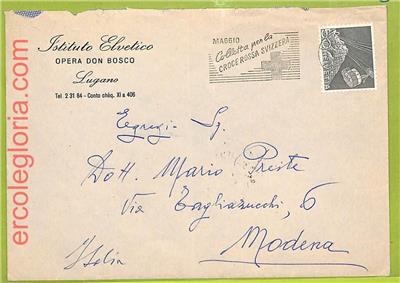 Istituto Elvetico
OPERA DON BOSCO
Lugano
Tel. 2 31 64 - Conto chèq. XI a 406
MAGGIO
Colletta per la
CROCE ROSSA SVIZZERA
HELVETIA
Egregi Sg.
Dott. Mario Preite
Via Tagliazucchi, 6
Modena
Italia
ercolegloria.com